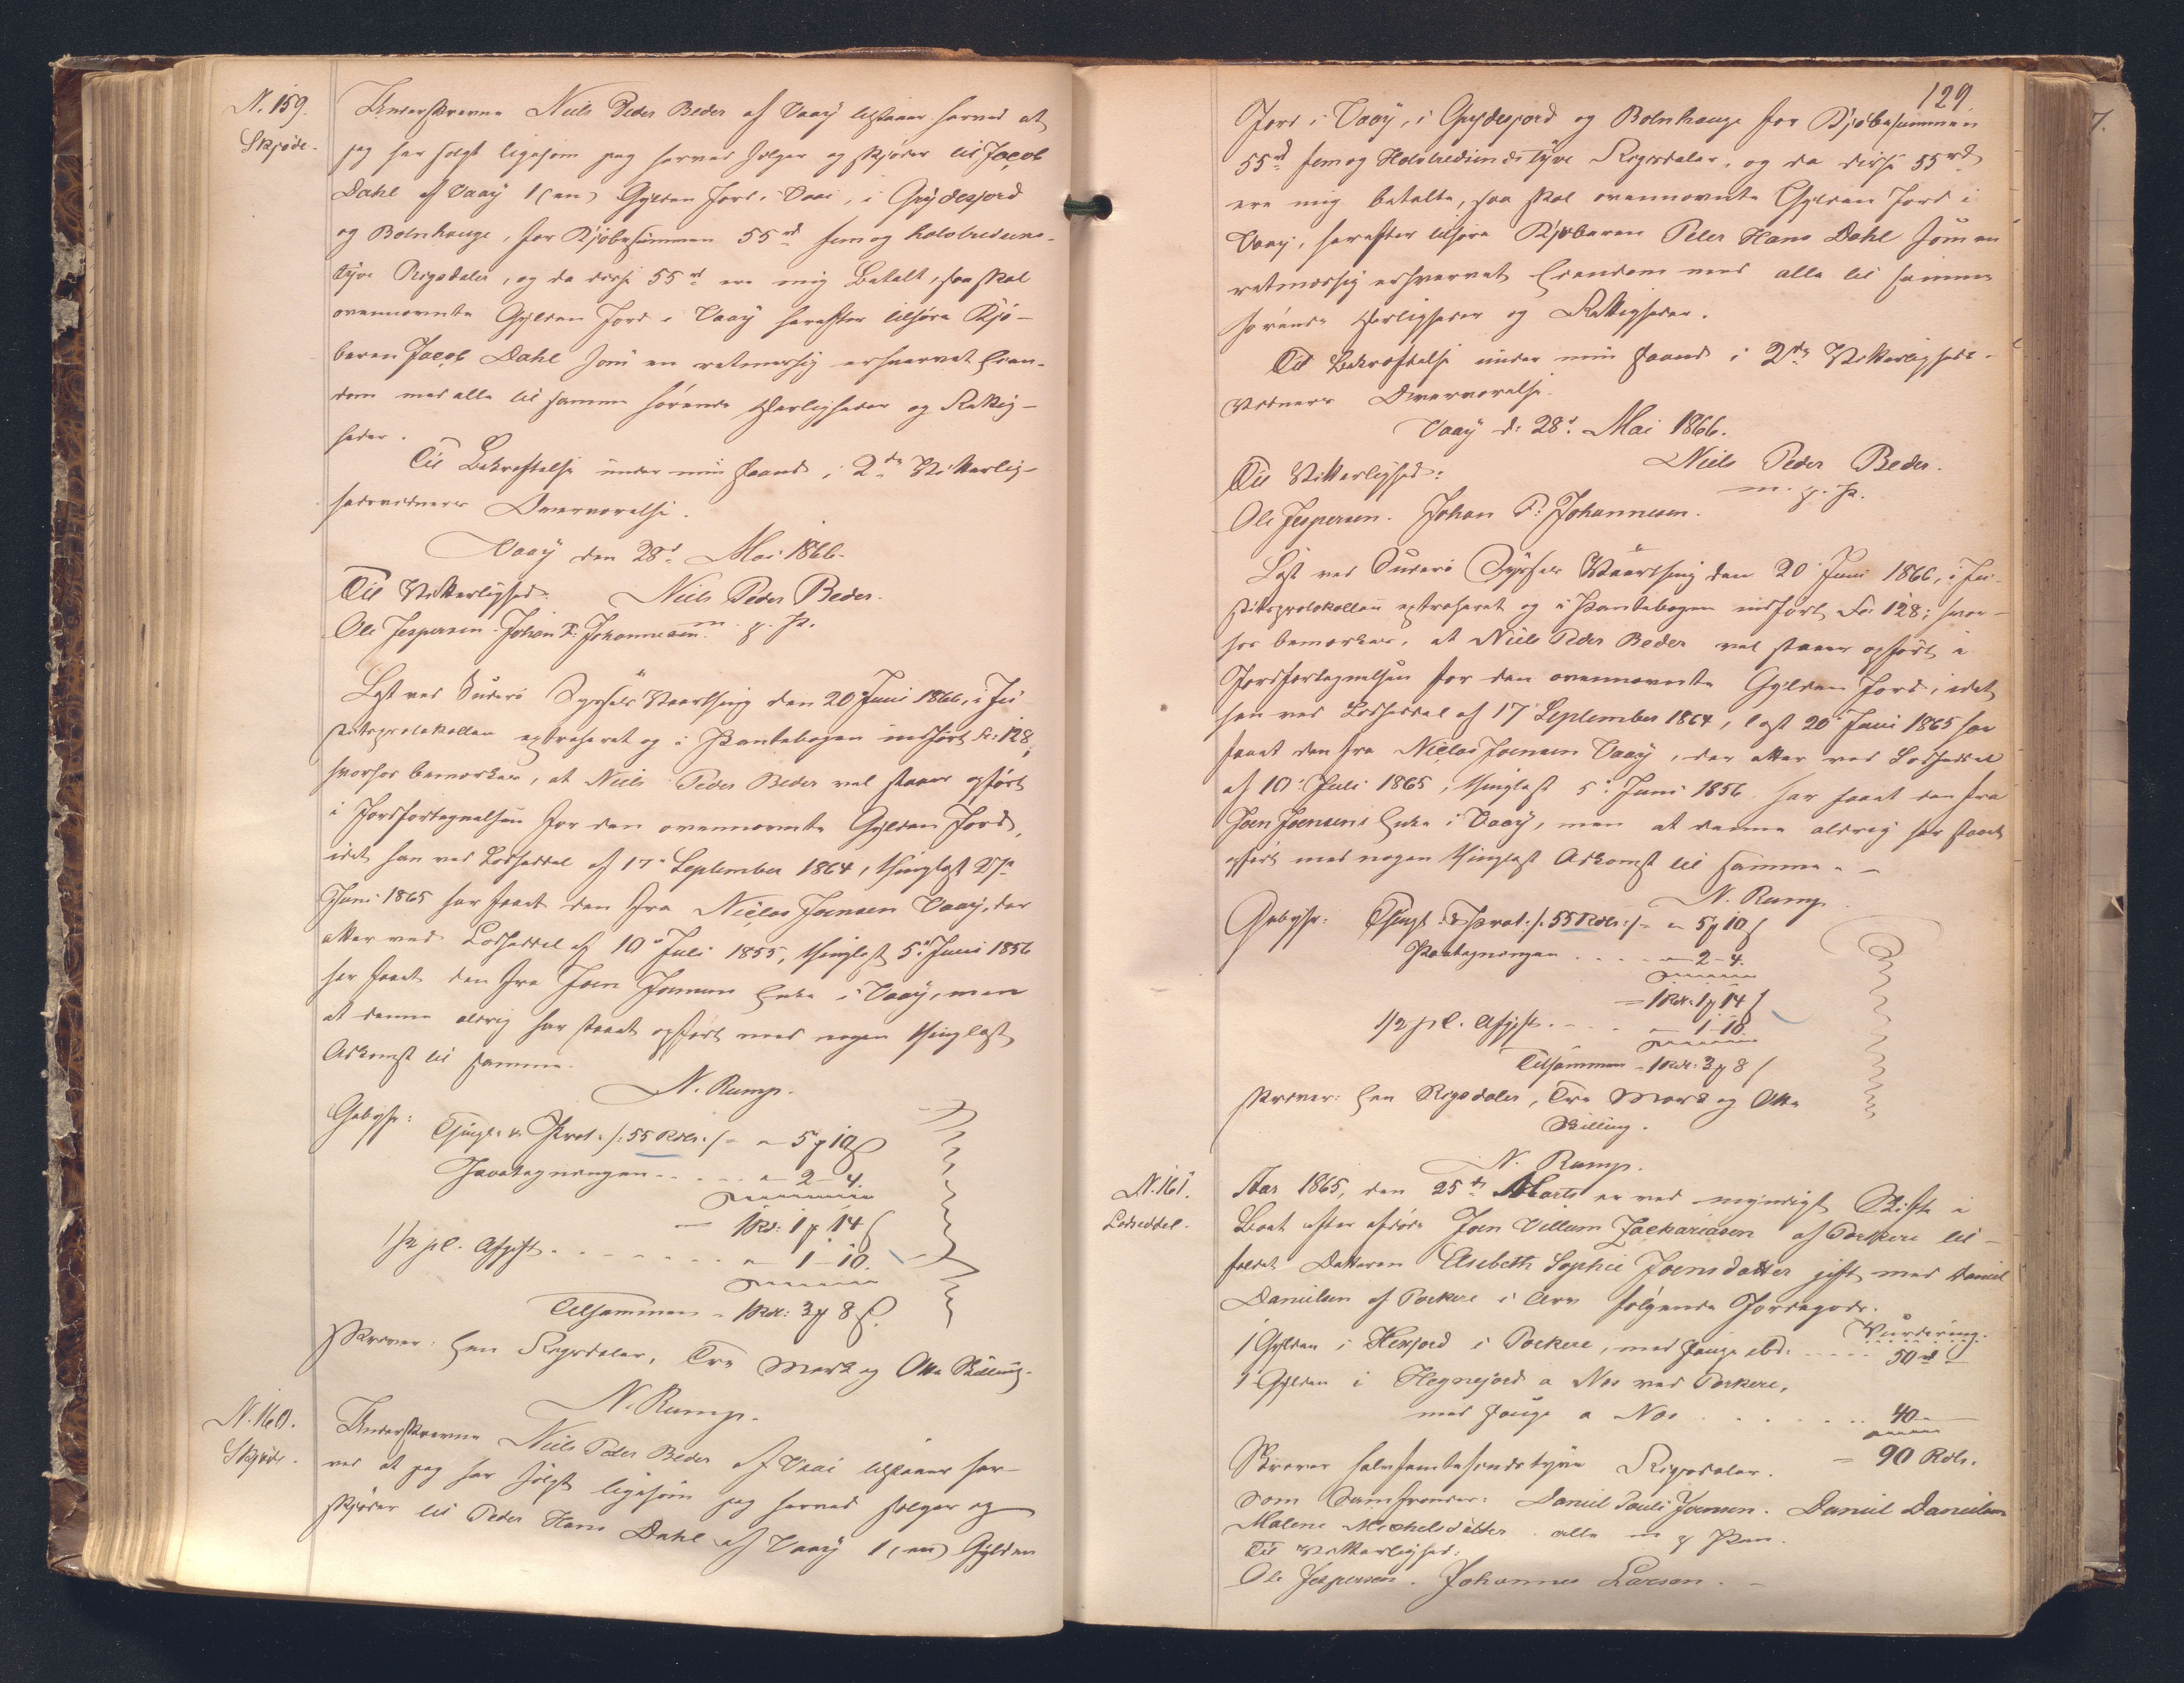 N. 159.
Skjøde.
Underskrevne Niels Peder Beder af Vaaÿ tilstaaer herved at
jeg har solgt ligesom jeg herved sælger og skjøder til Jacob
Dahl af Vaaÿ 1 (en) Gylden Jord i Vaai, i Grydesjord
og Bolnhauge, for Kjøbesummen 55 rd fem og halvtredsinds-
tyve Rigsdaler, og da disse 55 rd ere mig Betalt, saa skal
ovennævnte Gylden Jord i Vaaÿ herefter tilhøre Kjø-
beren Jacob Dahl som en retmæssig erhvervet Eien-
dom med alle til samme hørende Herligheder og Rettig-
heder.
Til Bekræftelse under min Haand i 2de Vitterlig-
hedsvidners Overværelse.
Vaaÿ den 28d Mai 1866.
Til Vitterlighed: Niels Peder Beder.
Ole Jespersen. Johan P. Johannesen. m. p. P.
Læst ved Suderø Syssels Vaarthing den 20 Juni 1866, i Ju-
stitsprotokollen extraheret og i Pantebogen indført Fo: 128;
hvorhos bemærkes, at Niels Peder Beder vel staaer opført
i Jordfortegnelsen for den ovennævnte Gylden Jord,
idet han ved Lodseddel af 17de September 1864, thinglæst 27de
Juni 1865 har faaet den fra Niclas Joensen Vaaÿ, der
atter ved Lodseddel af 10de Juli 1855, thinglæst 5te Juni 1856
har faaet den fra Joen Joensens Enke i Vaaÿ, men
at denne aldrig har staaet opført med nogen thinglæst
Adkomst til samme.
N. Rump.
Gebyhr: Thingl. & Prot. /: 55 Rdlr. :/ = „ 5 ꝟ 10 ß
Paategningen . . . . „ 2 – 4.
= 1 Rd: 1 ꝟ 14 ß
1/2 pCt. Afgift . . . . . . . „ 1 – 10.
Tilsammen = 1 Rdl: 3 ꝟ 8 ß.
skriver: Een Rigsdaler, Tre Mark og Otte Skilling.
N. Rump.
N. 160.
Skjøde.
Underskrevne Niels Peder Beder af Vaai tilstaaer her-
ved at jeg har solgt ligesom jeg herved sælger og
skjøder til Peder Hans Dahl af Vaaÿ 1 (en) Gylden
129.
Jord i Vaaÿ, i Grydesjord og Bolnhauge for Kjøbesummen
55 rd fem og Halvtredsindstyve Rigsdaler, og da disse 55 rd
ere mig betalte, saa skal ovennævnte Gylden Jord i
Vaaÿ, herefter tilhøre Kjøberen Peter Hans Dahl som en
retmæssig erhvervet Eiendom med alle til samme
hørende Herligheder og Rettigheder.
Til Bekræftelse under min Haand i 2de Vitterligheds-
vidners Overværelse.
Vaaÿ d: 28d. Mai 1866.
Til Vitterlighed: Niels Peder Beder.
m. p. P.
Ole Jespersen. Johan P. Johannesen.
Læst ved Suderø Syssels Vaarthing den 20 Juni 1866, i Ju-
stitsprotokollen extraheret og i Pantebogen indført Fo: 128; hvor-
hos bemærkes, at Niels Peder Beder vel staaer opført i
Jordfortegnelsen for den ovennævnte Gylden Jord, idet
han ved Lodseddel af 17 September 1864, læst 20de Juni 1865 har
faaet den fra Niclas Joensen Vaaÿ, der atter ved Lodseddel
af 10de Juli 1865, thinglæst 5te Juni 1856 har faaet den fra
Joen Joensens Enke i Vaaÿ, men at denne aldrig har staaet
opført med nogen thinglæst Adkomst til samme. –
N. Rump.
Gebyhr: Thingl. & Prot. /: 55 Rdlr. :/ = „ 5 ꝟ 10 ß
Paategningen . . . . „ 2 – 4.
= 1 Rdl: 1 ꝟ 14 ß
1/2 pCt. Afgift . . . . „ 1 – 10.
Tilsammen = 1 Rdl: 3 ꝟ 8 ß
skriver: Een Rigsdaler, Tre Mark og Otte
Skilling.
N. Rump.
N. 161.
Lodseddel.
Aar 1865, den 25de Marts er ved myndigt Skifte i
Boet efter afdøde Joen Villum Zachariasen af Porkere til-
faldet Datteren Elsebeth Sophie Joensdatter gift med Daniel
Danielsen af Porkere i Arv følgende Jordegods.
Vurdering.
1 Gylden i Heisjord i Porkere, med Hauge ibd. . . . . . 50 rd
1 Gylden i Hegnejord a Nes ved Porkere,
med Hauge a Nes . . . . . . . 40 –
= 90 Rdlr.
Skriver halvfemtesindstyve Rigsdaler.
Som Samfrænder: Daniel Pauli Joensen. Daniel Danielsen
Malene Michelsdatter. alle m p Pen.
Til Vitterlighed:
Ole Jespersen. Johannes Larsen. –